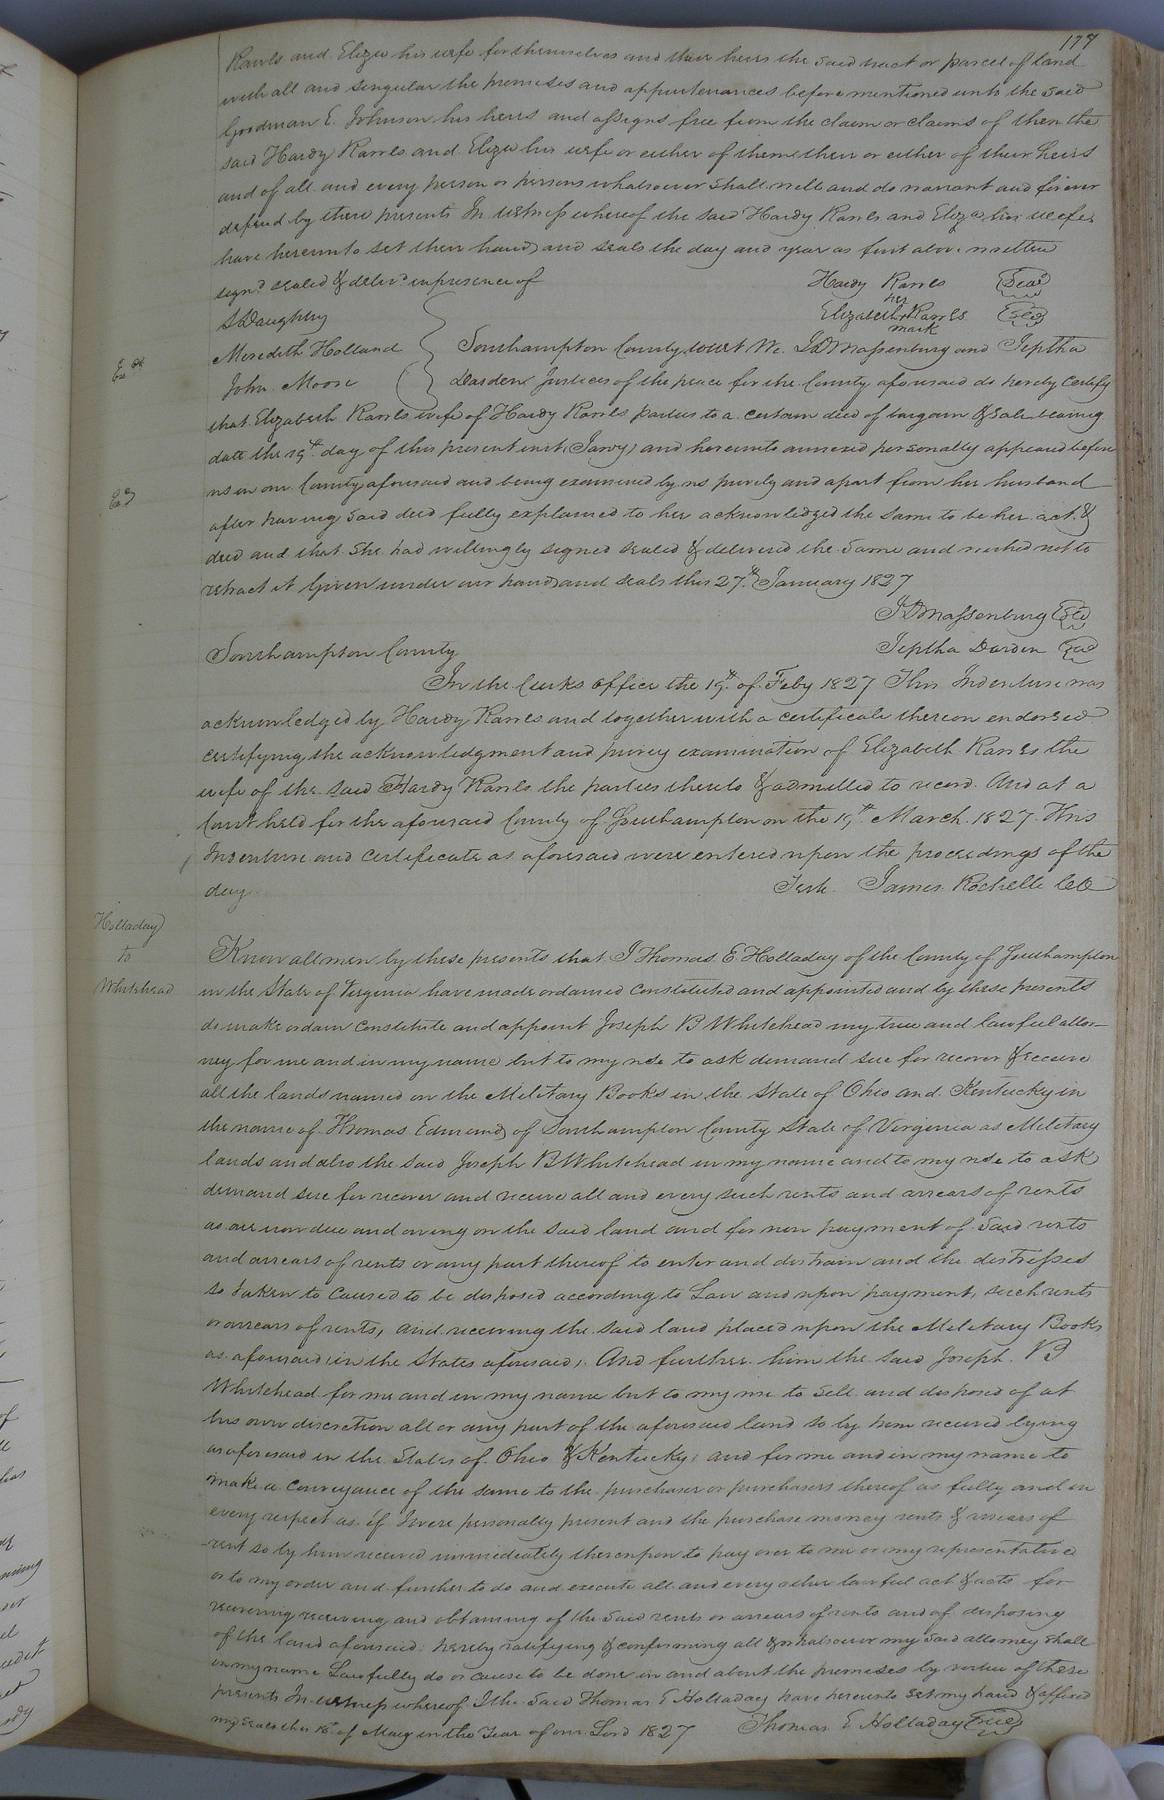 177
Rawls and Eliza his wife for themselves and their heirs the said tract or parcel of land
with all and singular the premises and appurtenances before mentioned unto the said
Goodman E. Johnson his heirs and assigns free from the claim or claims of them the
said Hardy Rawls and Eliza his wife or either of them their or either of their heirs
and of all and every person or persons whatsoever shall will and do warrant and forever
defend by these presents In witness whereof the said Hardy Rawls and Eliza his wife
have hereunto set their hands and seals the day and year as first above written
signd sealed & delivd in presence of
Hardy Rawls Seal
her
Elizabeth + Rawls Seal
mark
Daughtry
Meredith Holland
John Moore
Southampton County court We Massenburg and Jeptha
Darden Justices of the peace for the County aforesaid do hereby certify
that Elizabeth Rawls wife of Hardy Rawls parties to a certain deed of bargain & sale bearing
date the 19th day of this present inst (Jany) and hereunto annexed personally appeared before
us in our County aforesaid and being examined by us privily and apart from her husband
after having said deed fully explained to her acknowledged the same to be her act &
deed and that she had willingly signed sealed & delivered the same and wished not to
retract it Given under our hands and seals this 27th January 1827
Massenburg Seal
Jeptha Darden Seal
Southampton County
In the Clerks office the 19th of Feby 1827 This Indenture was
acknowledged by Hardy Rawls and together with a certificate thereon endorsed
certifying the acknowledgment and privy examination of Elizabeth Rawls the
wife of the said Hardy Rawls the parties thereto & admitted to record. And at a
Court held for the aforesaid County of Southampton on the 19th March 1827. This
Indenture and certificate as aforesaid were entered upon the proceedings of the
day
Teste James Rochelle
Holladay
to
Whitehead
Know all men by these presents that I Thomas E Holladay of the County of Southampton
in the State of Virginia have made ordained constituted and appointed and by these presents
do make ordain constitute and appoint Joseph B Whitehead my true and lawful attor-
ney for me and in my name but to my use to ask demand sue for recover & receive
all the lands named on the Military Books in the State of Ohio and Kentucky in
the name of Thomas Edmunds of Southampton County State of Virginia as Military
lands and also the said Joseph B Whitehead in my name and to my use to ask
demand sue for recover and receive all and every such rents and arrears of rents
as are now due and owing on the said land and for non payment of said rents
and arrears of rents or any part thereof to enter and distrain and the distresses
so taken to caused to be disposed according to Law and upon payment, such rents
or arrears of rents, and receiving the said land placed upon the Military Books
as aforesaid in the States aforesaid; And further him the said Joseph B
Whitehead for me and in my name but to my use to sell and disposed of at
his own discretion all or any part of the aforesaid land so by him secured lying
as aforesaid in the States of Ohio & Kentucky; and for me and in my name to
make a conveyance of the same to the purchaser or purchasers thereof as fully and in
every respect as if I were personally present and the purchase money rents & arrears of
rent so by him received immediately thereupon to pay over to me or my representative
or to my order and further to do and execute all and every other lawful act & acts for
recovering receiving and obtaining of the said rents or arrears of rents and of disposing
of the land aforesaid hereby ratifying & confirming all & whatsoever my said attorney shall
in my name Lawfully do or cause to be done in and about the premises by virtue of these
presents In witness whereof I the said Thomas E Holladay have hereunto set my hand & affixed
my seal this 18th of May in the Year of our Lord 1827 Thomas E Holladay Seal